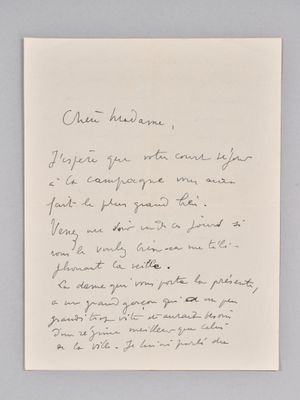 Chère Madame,
J'espère que votre court séjour
à la campagne vous aura
fait le plus grand bien.
Venez me voir un de ces jours si
vous le voulez bien en me télé-
phonant la veille.
La dame qui vous porte la présente,
a un grand garçon qui a un peu
grandi trop vite et aurait besoin
d'un régime meilleur que celui
de la ville. Je lui ai parlé de